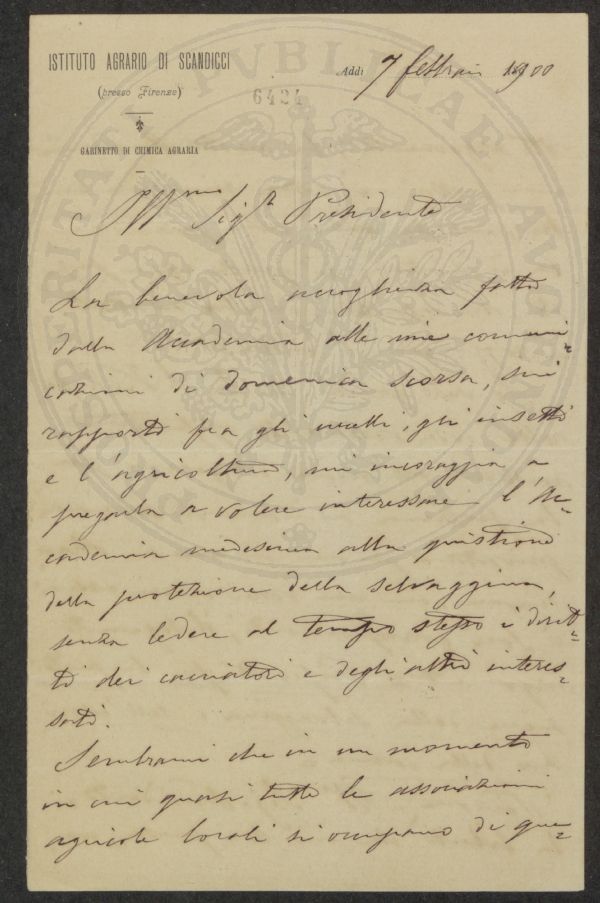 ISTITUTO AGRARIO DI SCANDICCI
(presso Firenze)
GABINETTO DI CHIMICA AGRARIA
Addì 7 febbraio 1900
6424
PROSPERITATI PVBLICAE AVGENDAE
Ill.mo Sig.r Presidente
La benevola accoglienza fatta
dalla Accademia alle mie comuni=
cazioni di domenica scorsa, sui
rapporti fra gli uccelli, gli insetti
e l'agricoltura, mi incoraggia a
pregarla a volere interessare l'Ac=
cademia medesima alla quistione
della protezione della selvaggina,
senza ledere al tempo stesso i dirit=
ti dei cacciatori e degli altri interes=
sati.
Sembrami che in un momento
in cui quasi tutte le associazioni
agricole locali si occupano di que=